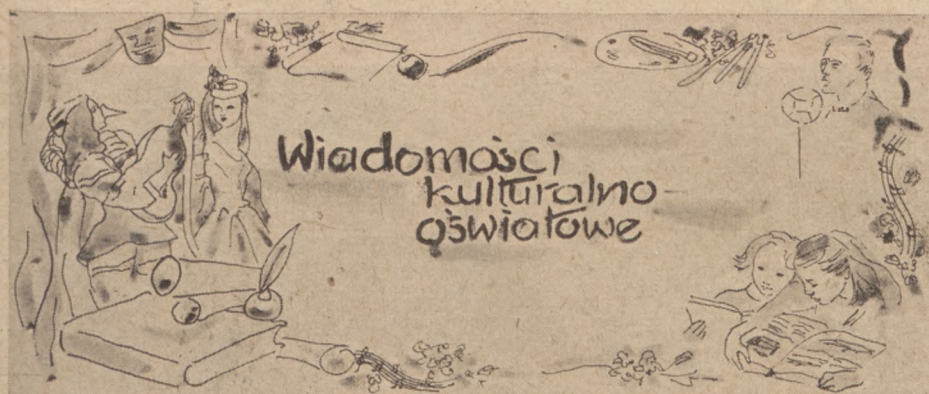 Wiadomości
kulturalno-
oświatowe